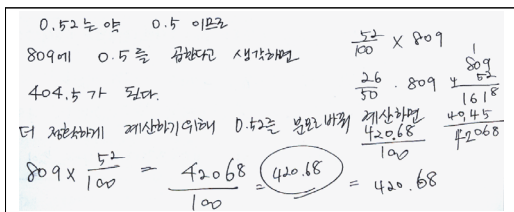 0.52는 약 0.5 이므로
809에 0.5를 곱한다고 생각하면
404.5가 된다.
더 정확하게 계산하기위해 0.52를 분모로 바꿔 계산하면
809 × 52/100 = 42068/100 = 420.68 = 420.68
52/100 × 809
26/50 . 809
42068/100
1
809
× 52
1618
4045
42068